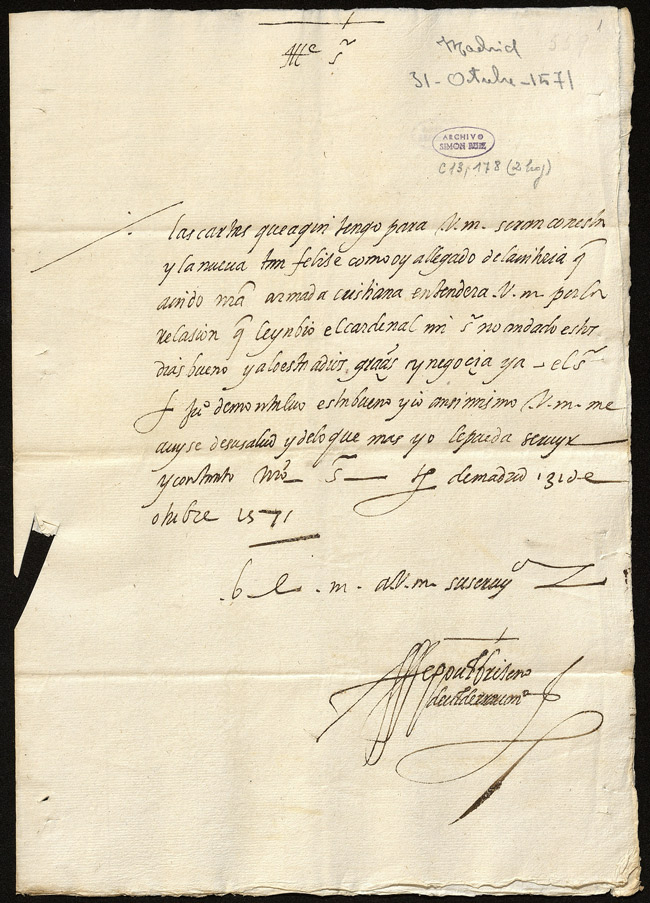 Madrid
31 - Octubre - 1571
1
Ille sr
ARCHIVO
SIMON RUIZ
C 13, 178 (2 hoj)
las cartas que aqui tengo para V. m. seran con esta
y la nueva tan felise como oy a llegado de la vitoria q
avido nra armada cristiana entendera V. m. por la
relasion q le ynbio el cardenal mi sr no a andado estos
dias bueno ya lo esta a dios graas y negocia ya - el sr
fr juo de montalvo esta bueno y io ansimismo V. m. me
avise de su salud y de lo que mas yo le pueda servyr
y contento nro sr de madrid 31 de
otubre 1571
b l. m. a V. m. su servyor